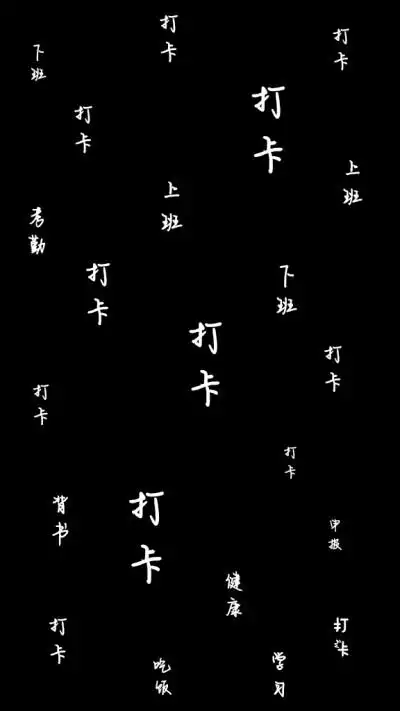 打卡
打卡
下班
打卡
打卡
上班
上班
考勤
打卡
下班
打卡
打卡
打卡
打卡
背书
打卡
申报
健康
打卡
打卡
吃饭
学习